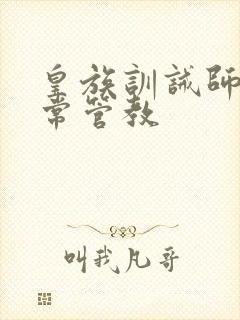 皇族訓誡師
常管教
叫我凡哥